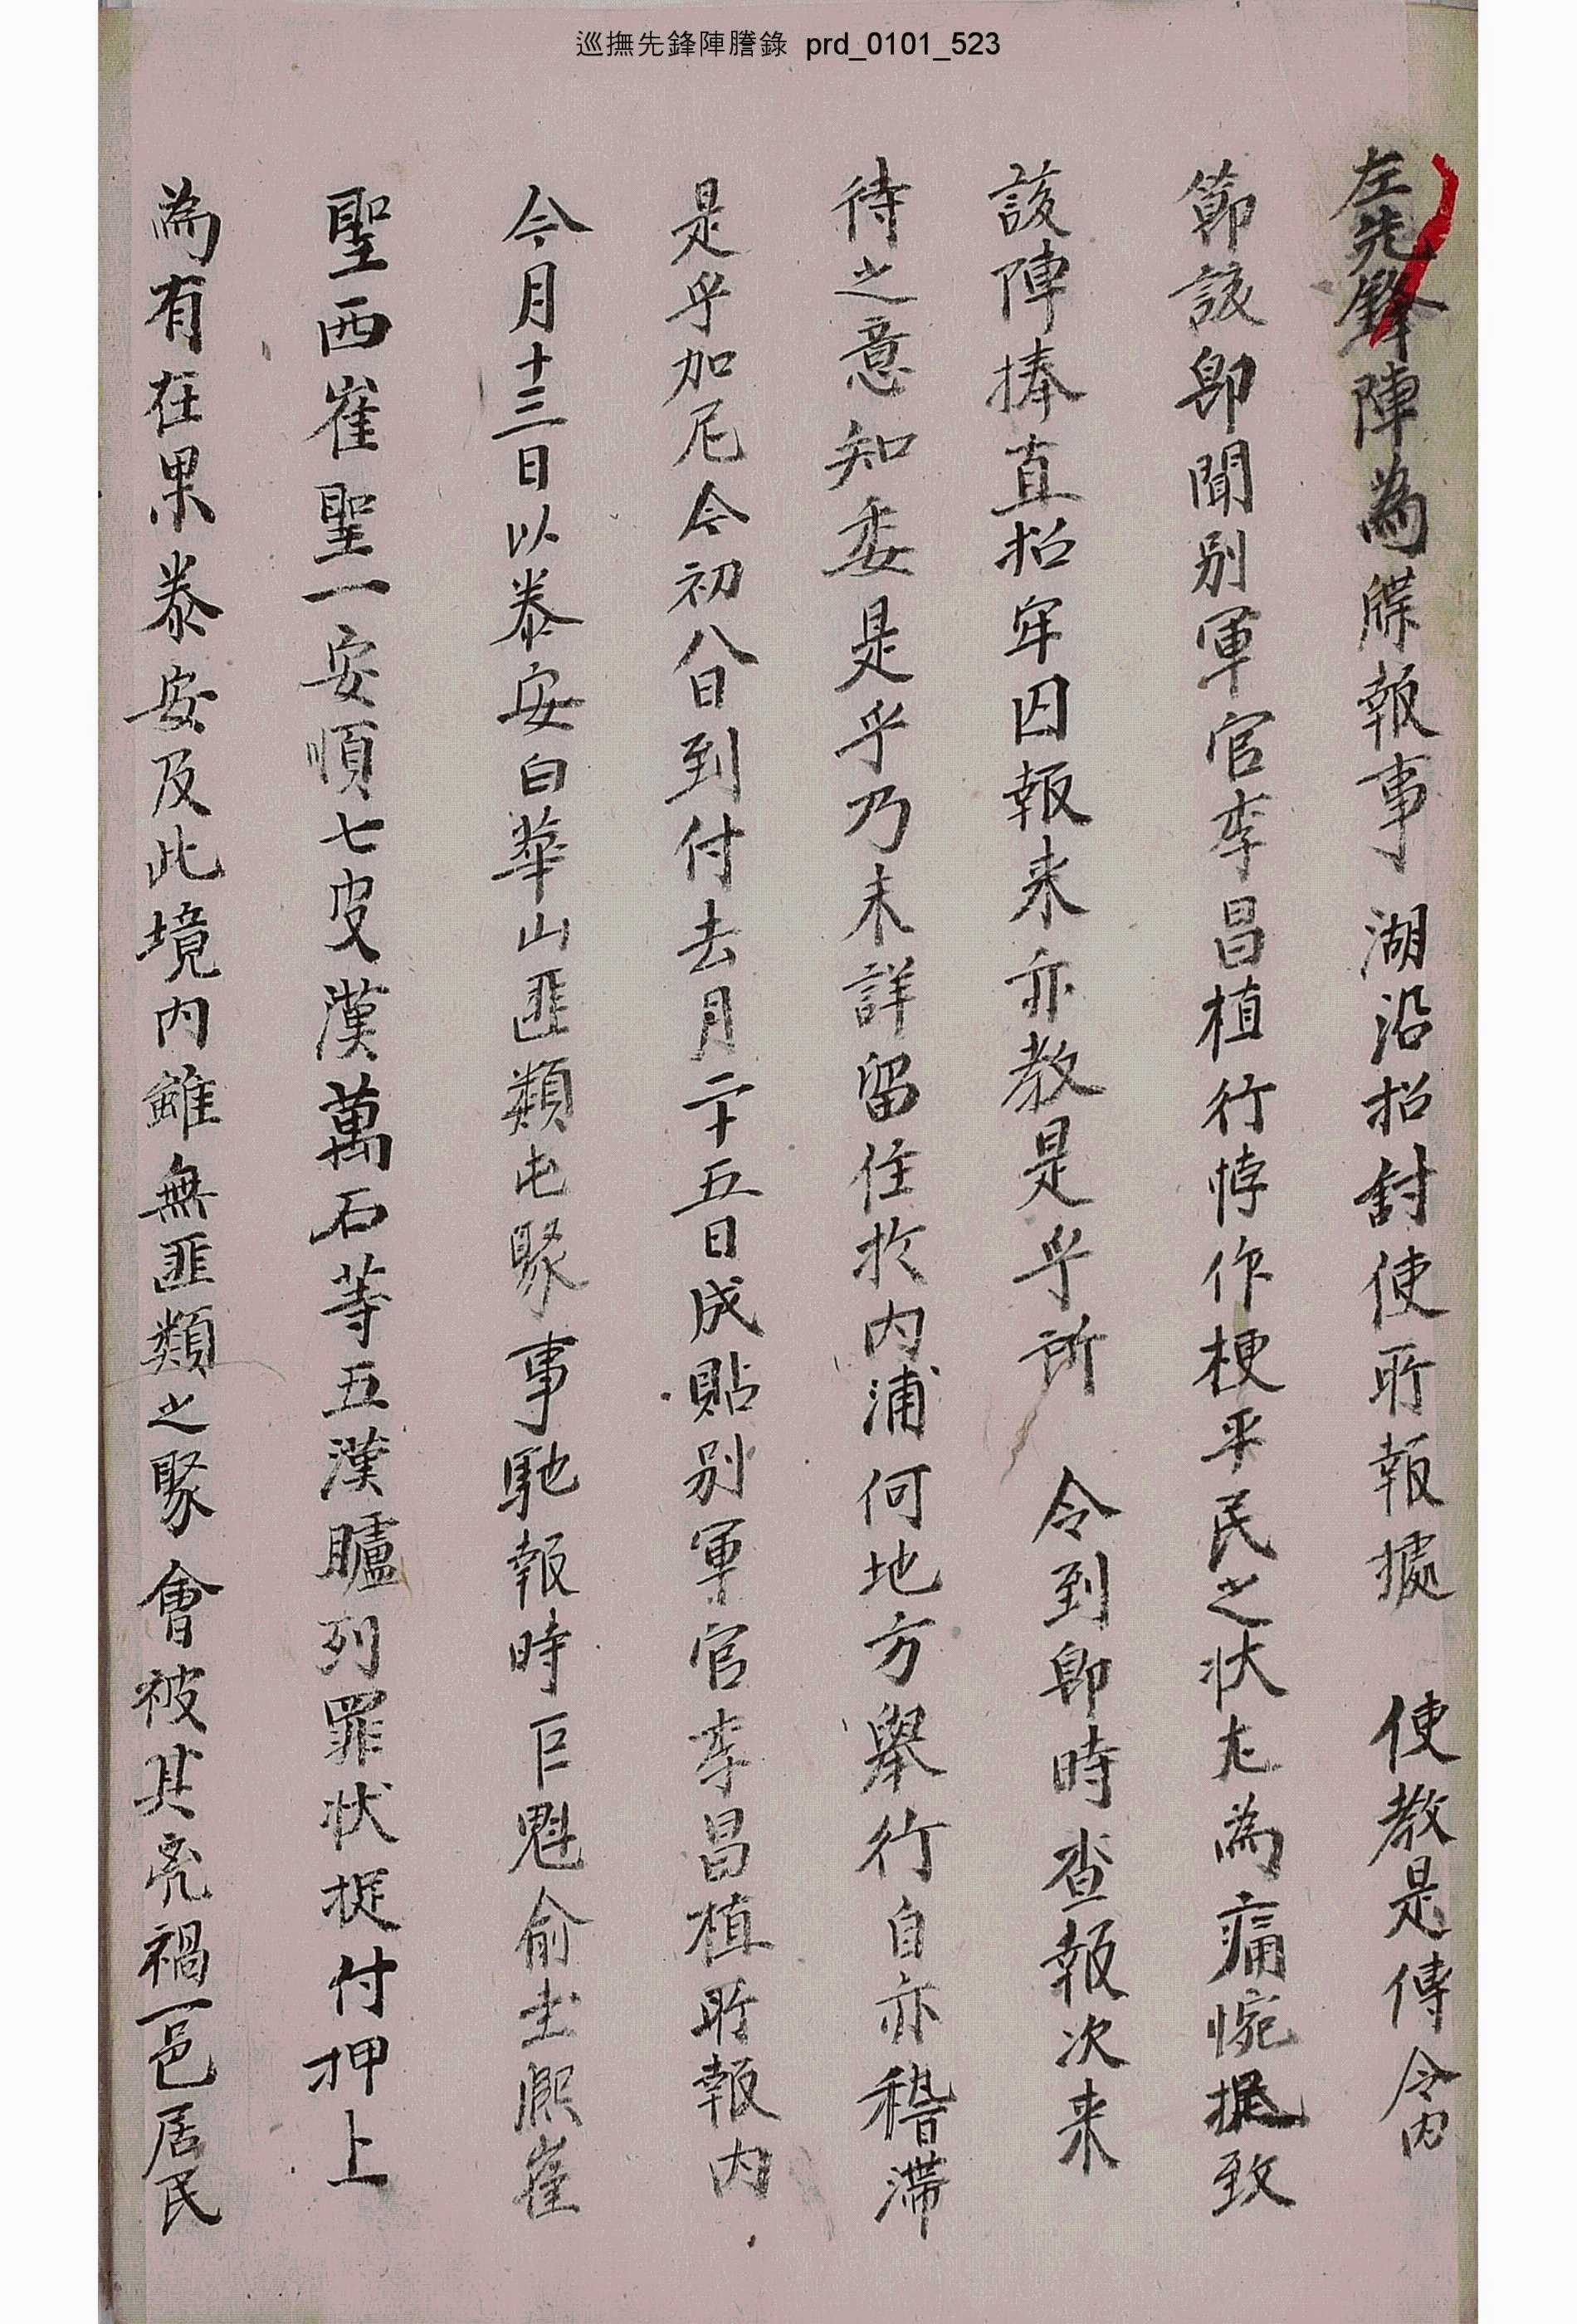 巡撫先鋒陣謄錄 prd_0101_523
左先鋒陣為牒報事 湖沿招討使所報據 使教是傳令內
節該卽聞別軍官李昌植行悖作梗平民之狀尤為痛惋捉致
該陣捧直招牢囚報来亦教是乎所 令到卽時查報次来
待之意知委是乎乃未詳留住於内浦何地方舉行自亦稽滯
是乎加尼今初八日到付去月二十五日成貼別軍官李昌植所報内
今月十三日以泰安白華山匪類屯聚事馳報時巨魁俞圭熙崔
聖西崔聖一安順七皮漢萬石等五漢臚列罪状捉付押上
為有在果泰安及此境内雖無匪類之聚會被其禿禍一邑居民